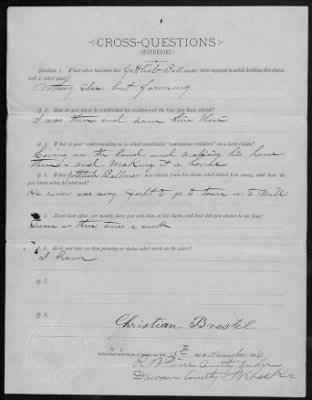 CROSS-QUESTIONS
(WITNESSES)
Question 1. What other business has Gottlieb Ballmer been engaged in while holding this claim,
and at what place?
Nothing else but farming
Q. 2. How do you know he established his residence at the time you have stated?
I was there and saw him there
Q. 3. What is your understanding as to what constitutes "continuous residence" on a land claim?
Living on the land and making his home
there and making it a home
Q. 4. When Gottlieb Ballmer was absent from his claim what called him away, and how do
you know when he returned?
He never was away Except to go to town or to Mill
Q. 5. About how often, per month, have you seen him on his claim, and how did you chance to see him?
or three times a week
Q. 6. Have you seen him planting or doing other work on the place?
I have
Q. 7.
Q. 8.
Christian Brestel
Subscribed and sworn to before me this day of November
County Judge
Dawson County Nebraska